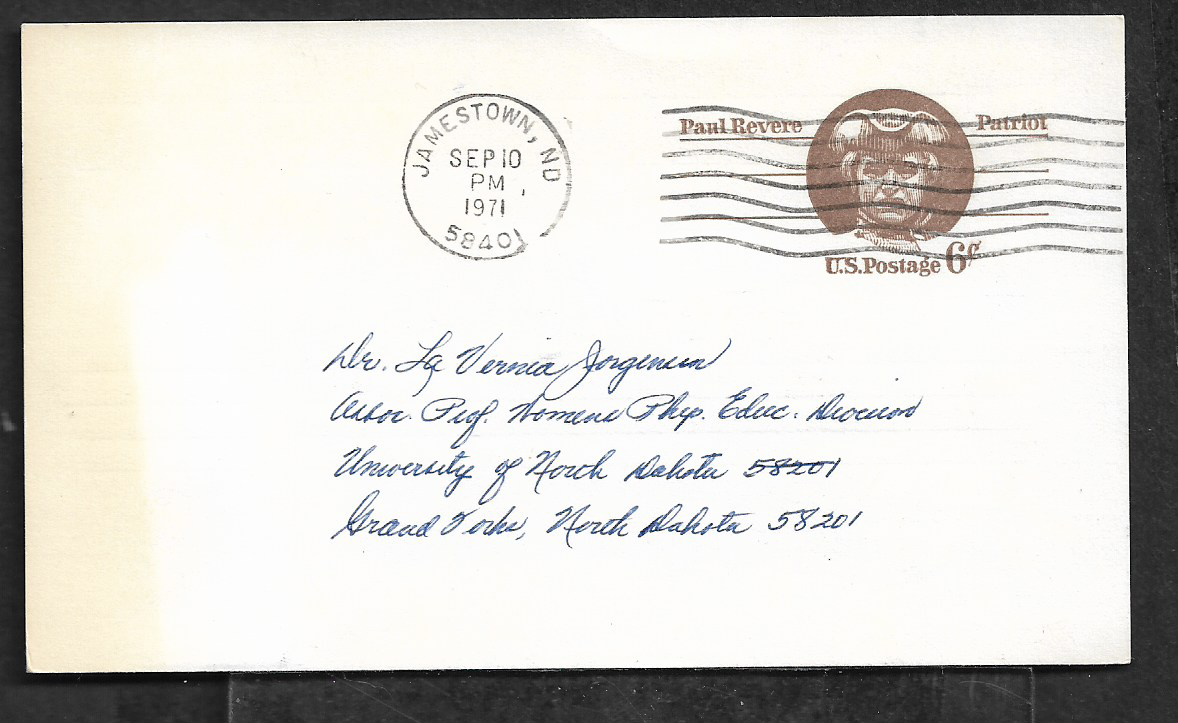 JAMESTOWN, ND
SEP 10
PM
1971
58401
Paul Revere Patriot
U.S. Postage 6¢
Dr. La Vernia Jorgensen
Assoc. Prof. Womens Phys. Educ. Division
University of North Dakota 58201
Grand Forks, North Dakota 58201